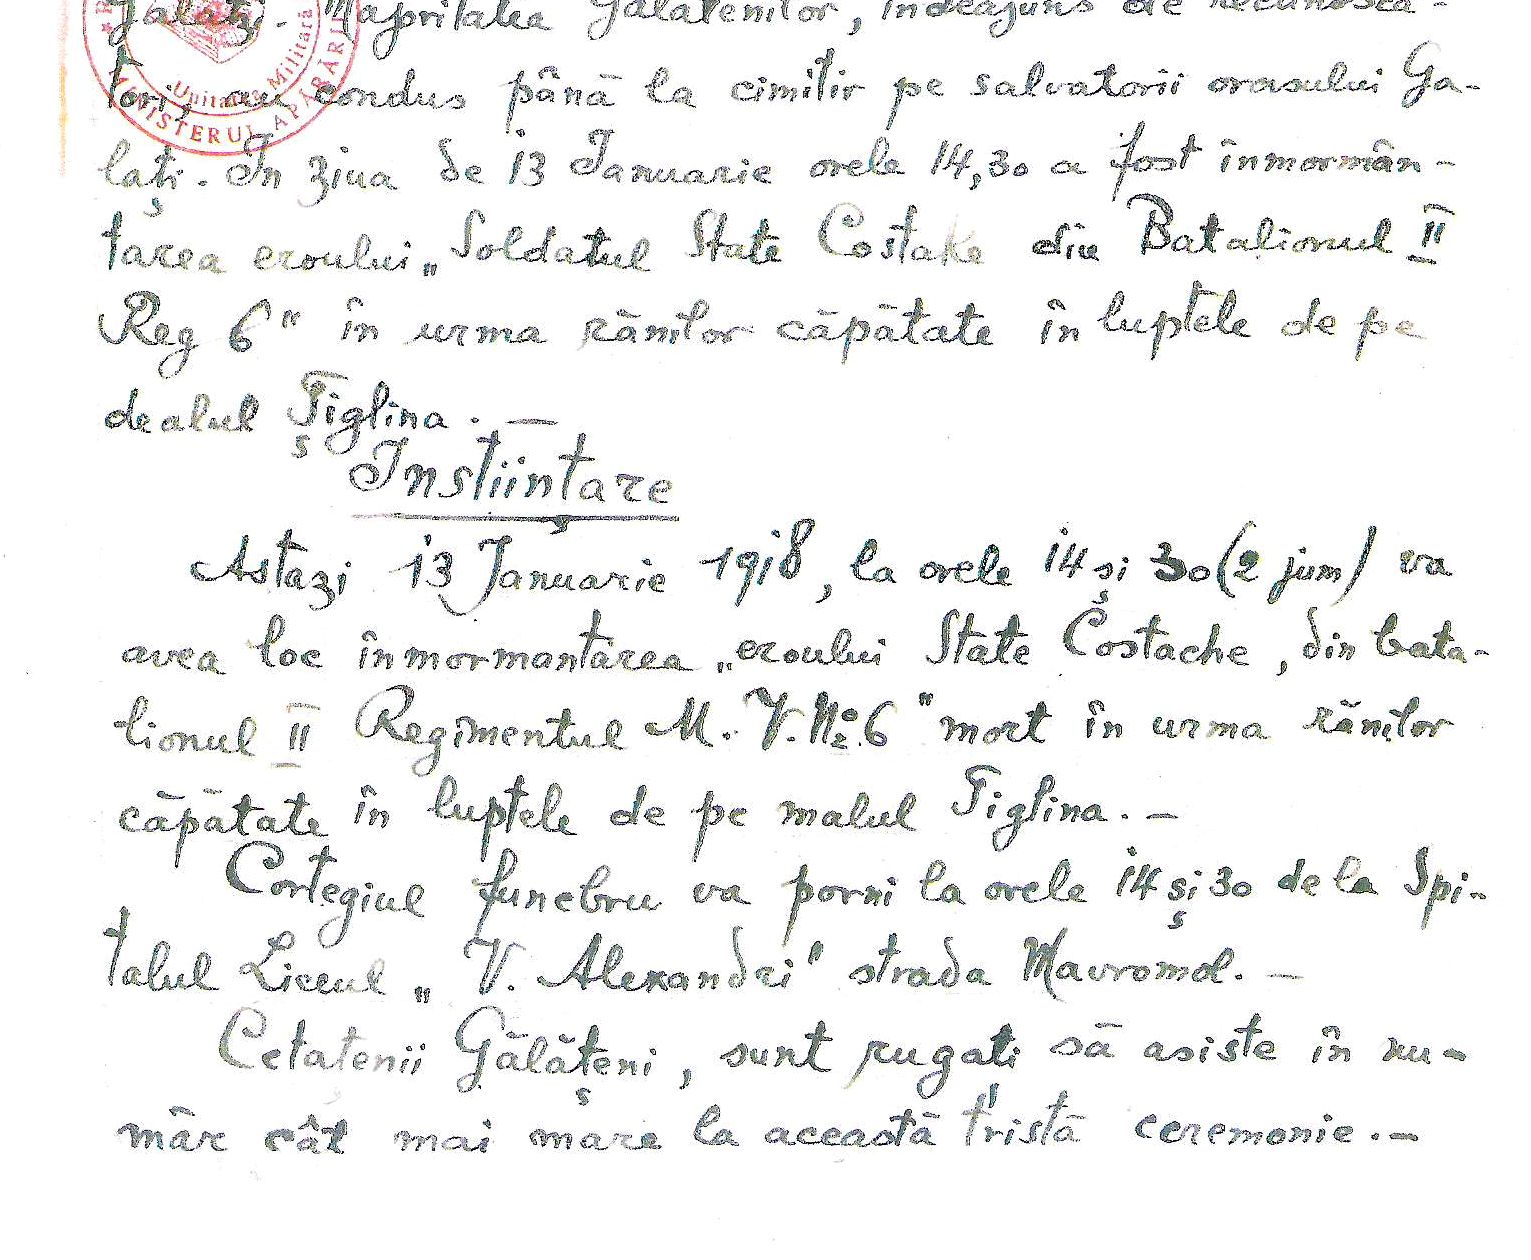 Galați. Majoritatea Gălățenilor, îndeajuns de recunoscă-
tori, au condus până la cimitir pe salvatorii orasului Ga-
lați. In ziua de 13 Ianuarie orele 14,30 a fost înmormân-
tarea eroului „Soldatul State Costake din Batalionul II
Reg 6" în urma rănilor căpătate în luptele de pe
dealul Țiglina. —
Instiințare
Astazi 13 Ianuarie 1918, la orele 14 și 30 (2 jum) va
avea loc înmormantarea „eroului State Costache, din bata-
lionul II Regimentul M. V. No 6" mort în urma rănilor
căpătate în luptele de pe malul Tiglina. —
Cortegiul funebru va porni la orele 14 și 30 de la Spi-
talul Liceul „V. Alexandri" strada Mavromol. —
Cetatenii Gălățeni, sunt rugati să asiste în nu-
măr cât mai mare la această tristă ceremonie. —
Unitatea Militară
MINISTERUL APĂRĂRII